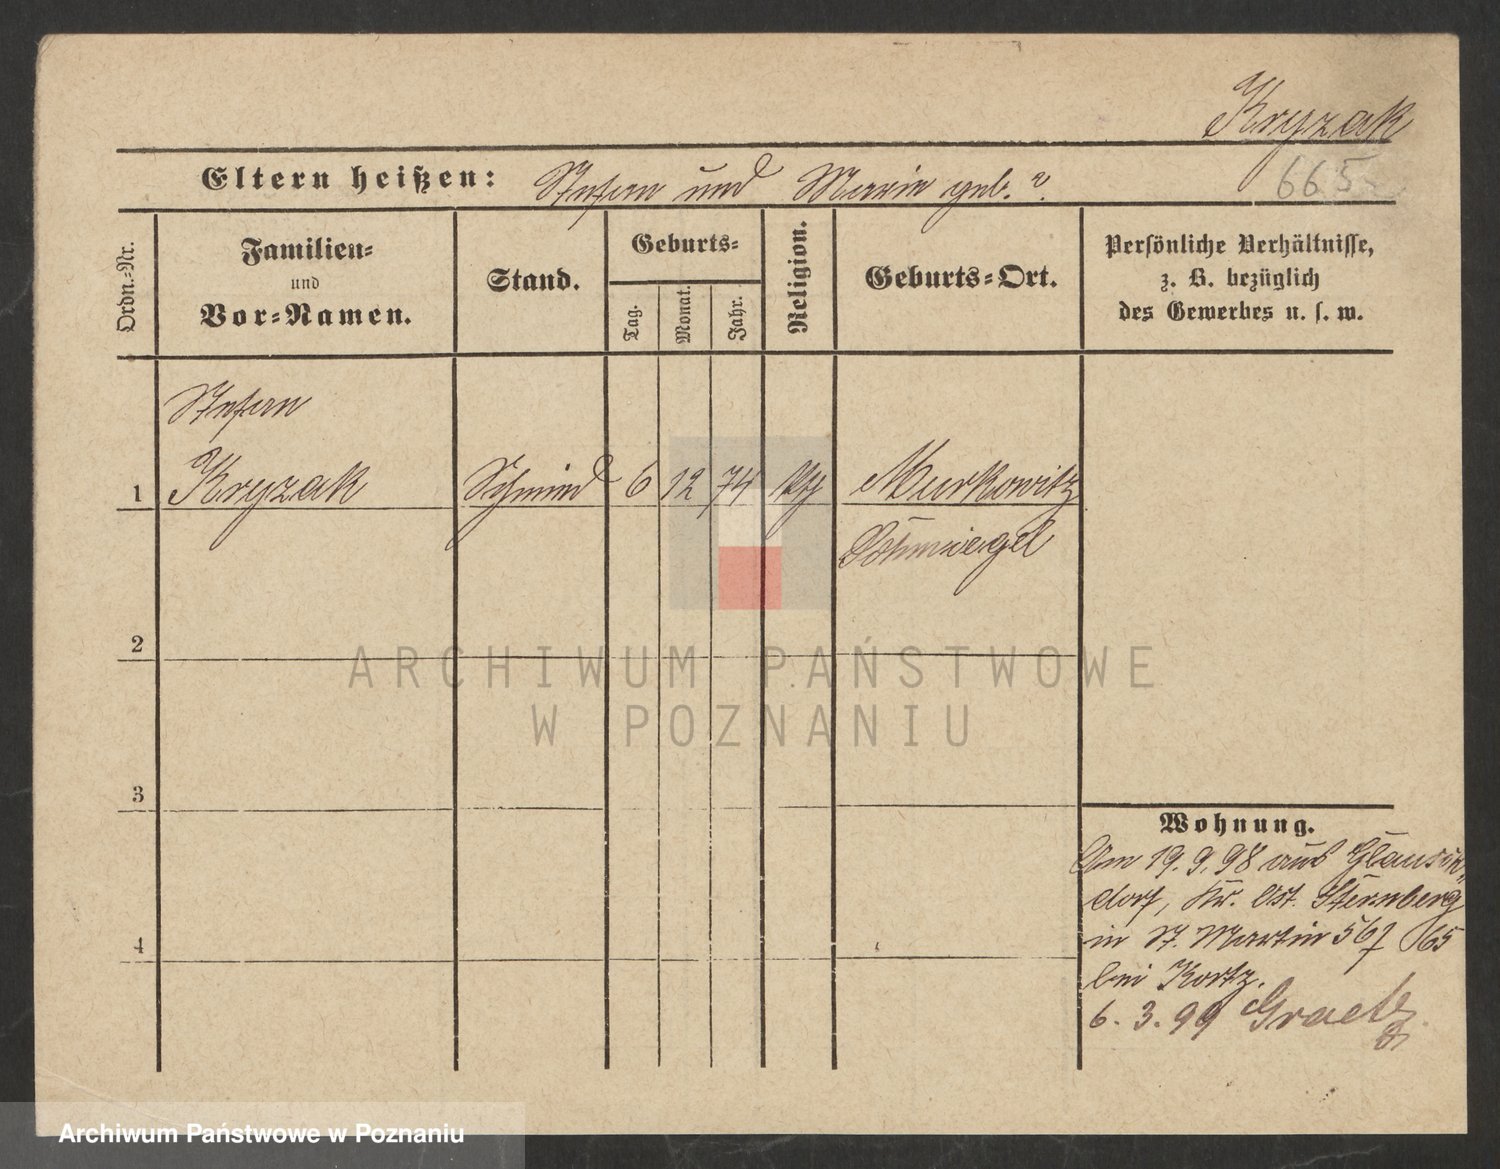 Kryzak
665
Eltern heißen: Stefan und Marie geb. ?.
Ordn.-Nr.
Familien-
und
Vor-Namen.
Stand.
Geburts-
Tag.
Monat.
Jahr.
Religion.
Geburts-Ort.
Persönliche Verhältnisse,
z. B. bezüglich
des Gewerbes u. s. w.
Stefan
1 Kryzak Schmied 6 12 74 Murkowitz
Schmiegel
2
3
4
Wohnung.
Am 19. 9. 98 aus
dorf, Kr. Ost. Sternberg
in St. Martin 567 65
bei Kortz.
6. 3. 99 Graetz
ARCHIWUM PAŃSTWOWE
W POZNANIU
Archiwum Państwowe w Poznaniu